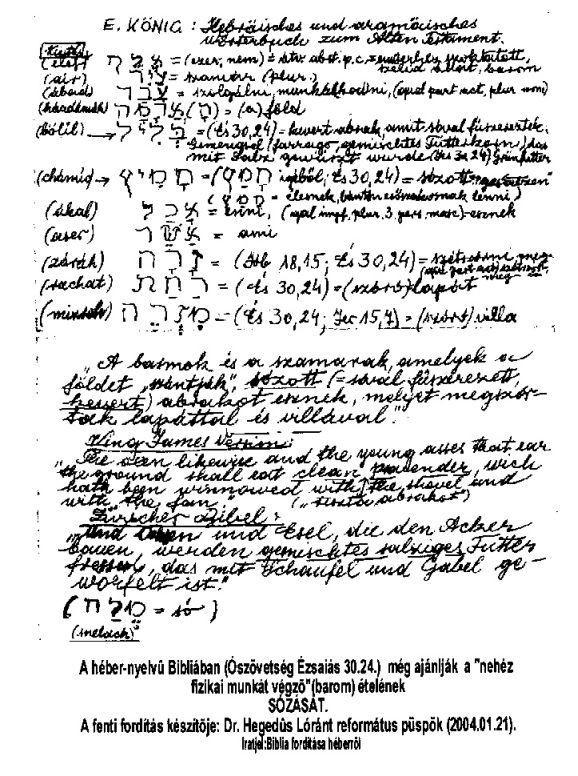 E. KÖNIG: Hebräisches und aramäisches
Wörterbuch zum Alten Testament.
(elef)
(air) = szamarr (plur.)
(ábad) = szolgálni, munkálkodni, (qal part act, plur nom)
= (a) föld
(bólil) → בליל = (És 30,24) = kevert abrak, amit sóval fűszereztek.
Gemengsel (farrago, gemischtes Futterkorn) das
mit Salz gewürzt wurde (És 30,24) Grünfutter
(chámic) → חמיץ = (חמץ igéből, És 30,24) = sózott
(ákal) אכל = enni, (qal impf. plur. 3. pers masc) = esznek
(aser) אשר = ami
(záráh) זרה = (Jób 18,15; És 30,24) = szétszórni
(rachat) רחת = (És 30,24) = (szóró) lapát
(mizreh) מזרה = (És 30,24; Jer 15,7) = (szóró) villa
„A barmok és a szamarak, amelyek a
földet „szántják”, sózott (= sóval fűszerezett,
kevert) abrakot esznek, melyet megszór-
tak lapáttal és villával.”
King James Version:
„The oxen likewise and the young asses that ear
the ground shall eat clean provender, wich
hath been winnowed with the shovel and
with the fan. („tiszta abrakot”)
Zürcher Bibel:
„Und Ochsen und Esel, die den Acker
bauen, werden gemischtes salziges Futter
fressen, das mit Schaufel und Gabel ge-
worfelt ist.”
(מלח = só)
(melach)
A héber-nyelvű Bibliában (Ószövetség Ézsaiás 30.24.) még ajánlják a "nehéz
fizikai munkát végző"(barom) ételének
SÓZÁSÁT.
A fenti fordítás készítője: Dr. Hegedűs Lóránt református püspök (2004.01.21).
Iratjel:Biblia fordítása héberről